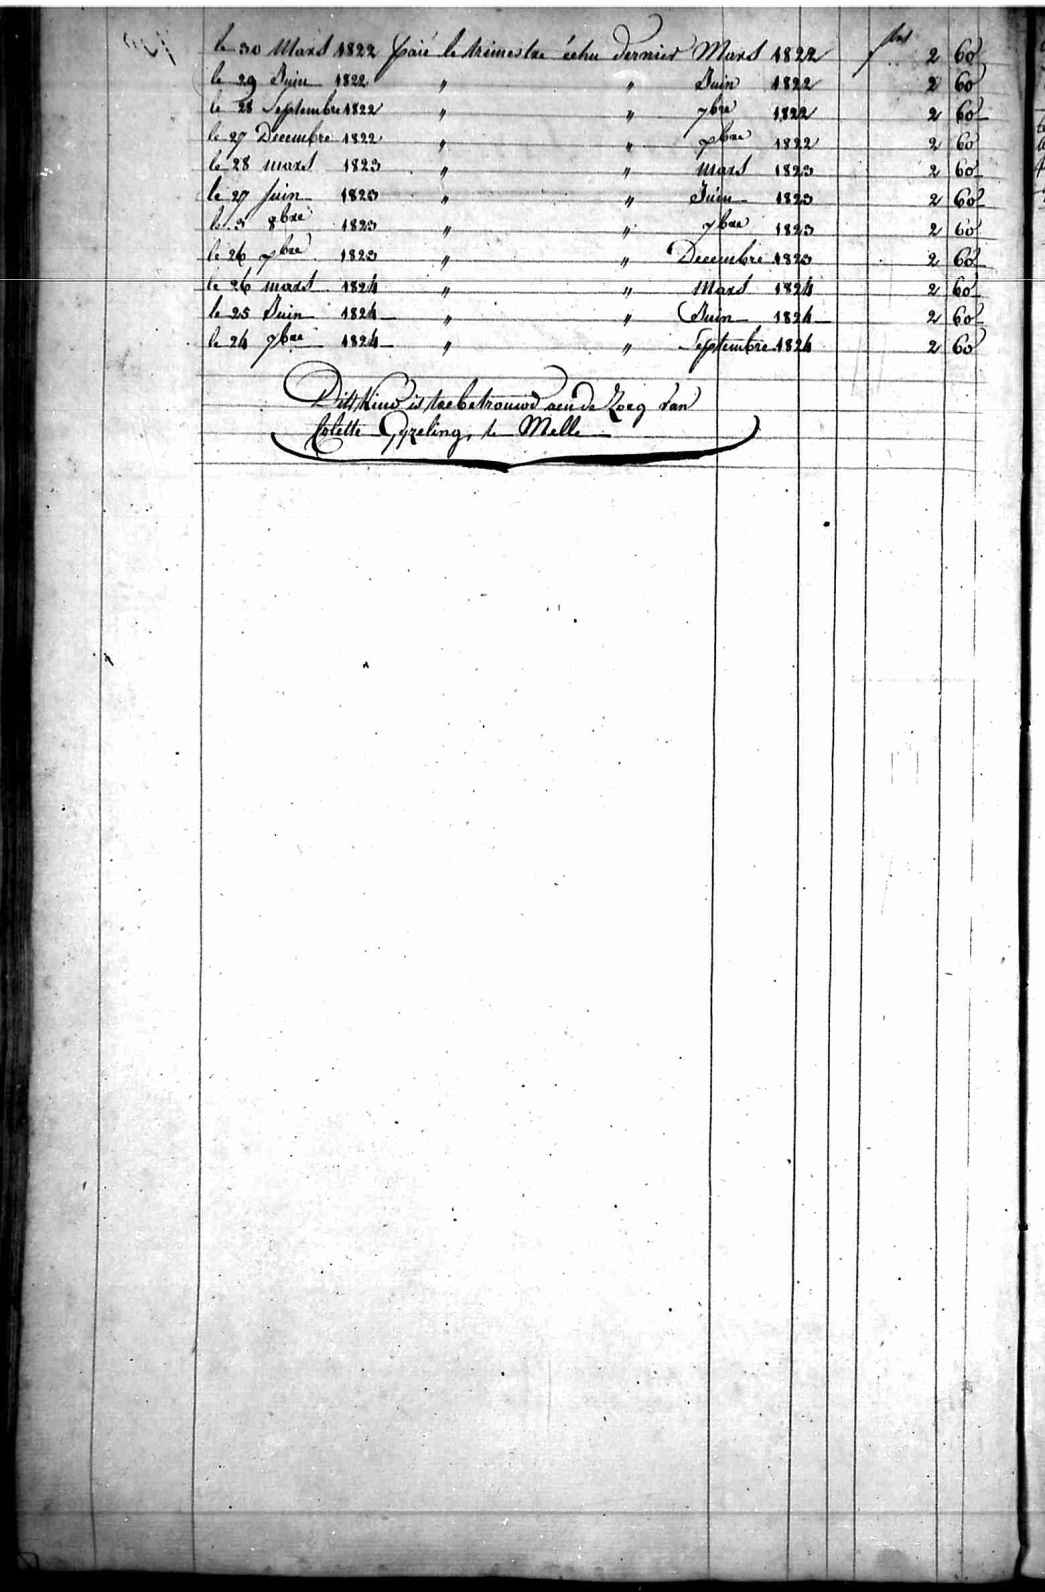 le 30 Mars 1822 paié le trimestre échu dernier Mars 1822 2 60
le 29 Juin 1822 " " Juin 1822 2 60
le 28 Septembre 1822 " " 7bre 1822 2 60
le 27 Decembre 1822 " " xbre 1822 2 60
le 28 mars 1823 " " mars 1823 2 60
le 27 juin 1823 " " Juin 1823 2 60
le 3 8bre 1823 " " 7bre 1823 2 60
le 26 xbre 1823 " " Decembre 1823 2 60
le 26 mars 1824 " " Mars 1824 2 60
le 25 Juin 1824 " " Juin 1824 2 60
le 24 7bre 1824 " " Septembre 1824 2 60
Ditt Kind is toebetrouwd aen de Zorg van
Colette Gyzeling, te Melle